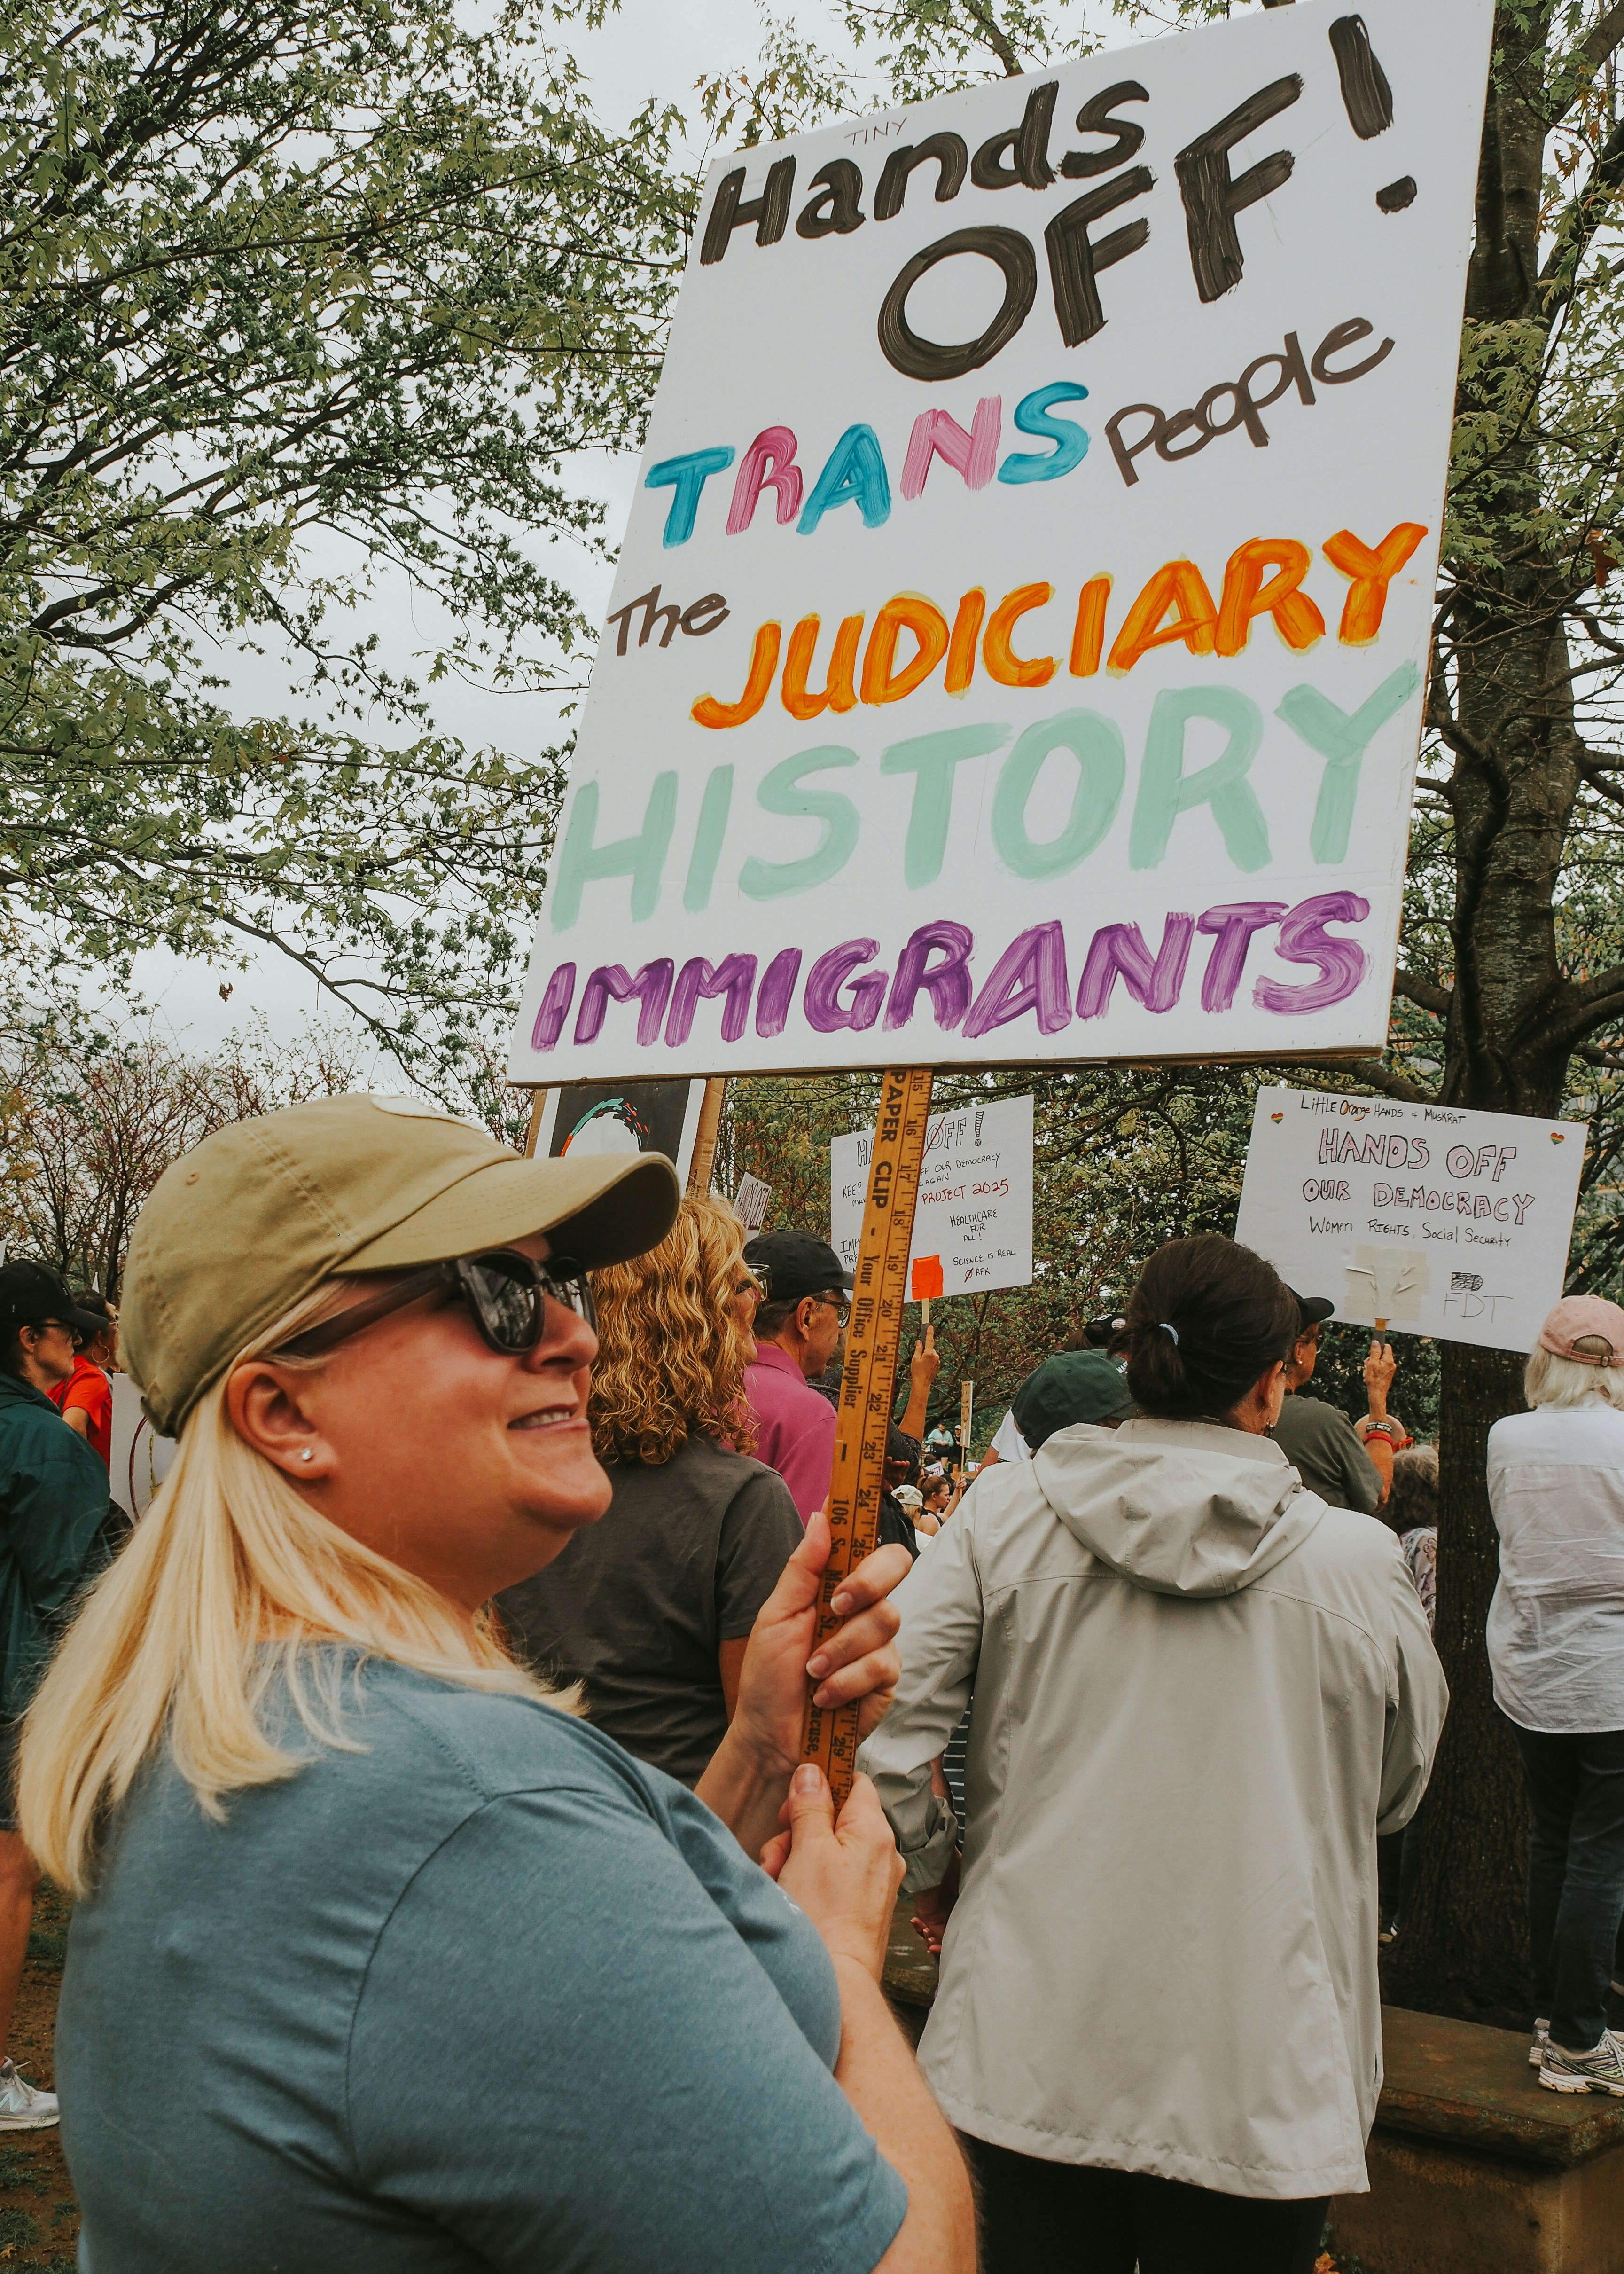 TINY
Hands
OFF!
TRANS People
The JUDICIARY
HISTORY
IMMIGRANTS
15
PAPER CLIP - Your Office Supplier - 106 So. Main St.,
16
17
18
19
20
21
22
23
24
25
29
OFF!
OUR DEMOCRACY
KEEP
AGAIN
PROJECT 2025
HEALTHCARE
FOR
ALL!
SCIENCE IS REAL
RFK
LITTLE Orange HANDS + MUSKRAT
HANDS OFF
OUR DEMOCRACY
Women RIGHTS, Social Security
FDT